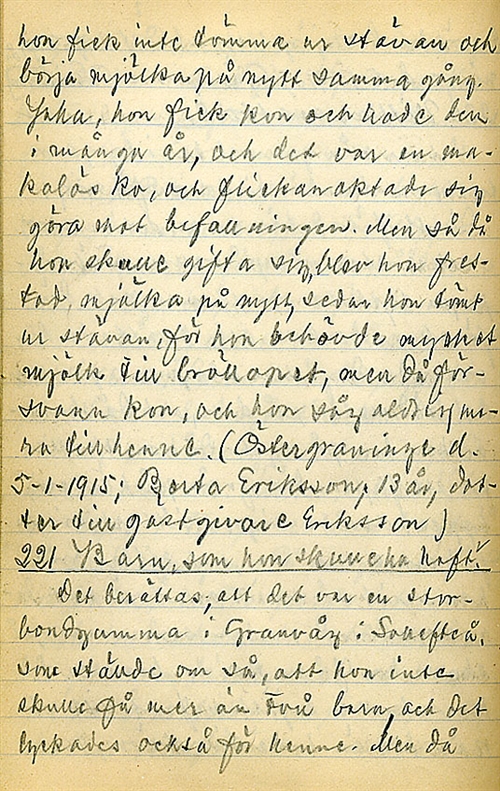 hon fick inte tömma ur stävan och
börja mjölka på nytt samma gång.
Jaha, hon fick kon och hade den
i många år, och det var en ma-
kalös ko, och flickan aktade sig
göra mot befallningen. Men så då
hon skulle gifta sig, blev hon fres-
tad, mjölka på nytt, sedan hon tömt
ur stävan, för hon behövde mycket
mjölk till bröllopet, men då för-
svann kon, och hon såg aldrig me-
ra till henne. (Östergraninge d.
5-1-1915; Berta Eriksson, 13 år, dot-
ter till gästgivare Eriksson)
221 Barn, som hon skulle ha haft.
Det berättas, att det var en stor-
bondgumma i Granvåg i Sollefteå,
som ställde om så, att hon inte
skulle få mer än två barn, och det
lyckades också för henne. Men då